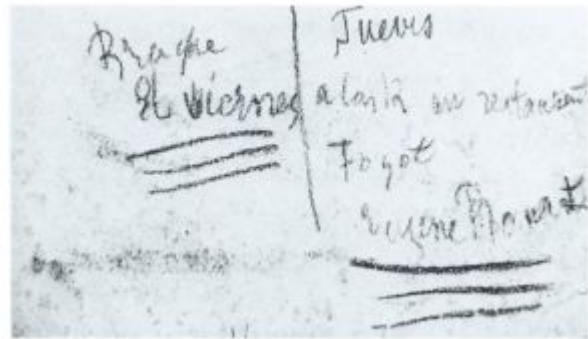 Braque
El viernes
Jueves
a las 12 en restaurant
Foyot
Eugene